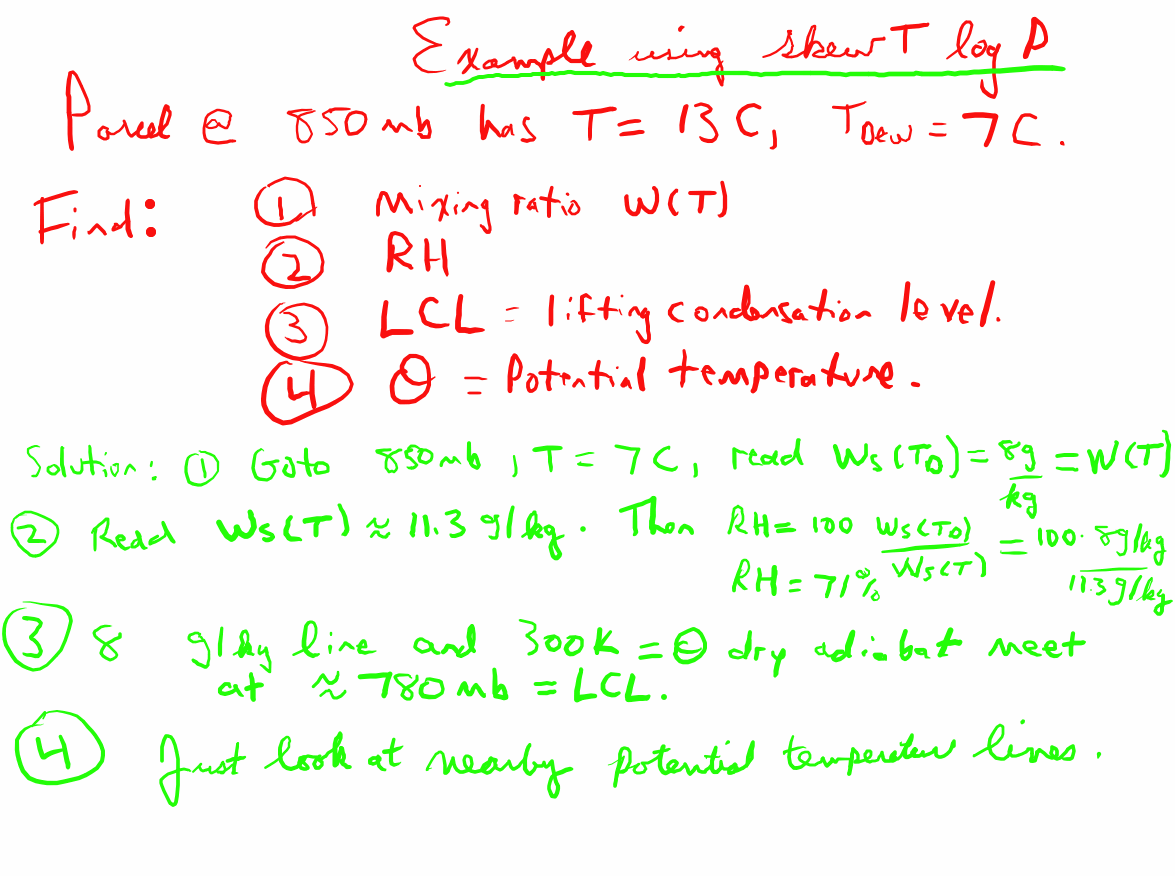 Example using skew T log P
Parcel @ 850 mb has T = 13 C, TDew = 7 C.
Find: ① Mixing ratio W(T)
② RH
③ LCL = lifting condensation level.
④ Θ = Potential temperature.
Solution: ① Goto 850 mb, T = 7 C, read Ws(TD) = 8g/kg = W(T)
② Read Ws(T) ≈ 11.3 g/kg. Then RH = 100 Ws(TD)/Ws(T) = 100 · 8g/kg / 11.3 g/kg
RH = 71%
③ 8 g/kg line and 300K = Θ dry adiabat meet
at ≈ 780 mb = LCL.
④ Just look at nearby potential temperature lines.